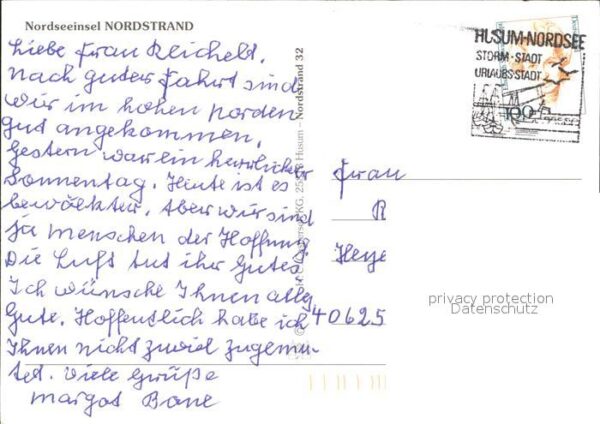 Nordseeinsel NORDSTRAND
Liebe Frau Reichelt,
nach guter Fahrt sind
wir im hohen Norden
gut angekommen.
Gestern war ein herrlicher
Sonnentag. Heute ist es
bewölkter. Aber wir sind
ja Menschen der Hoffnung
Die Luft tut ihr Gutes.
Ich wünsche Ihnen alles
Gute. Hoffentlich habe ich
Ihnen nicht zuviel zugemu-
tet. Viele Grüße
Margot Bane
Husum – Nordstrand 32
HUSUM-NORDSEE
STORM-STADT
URLAUBSSTADT
100
Frau
R
Heye
40625
privacy protection
Datenschutz